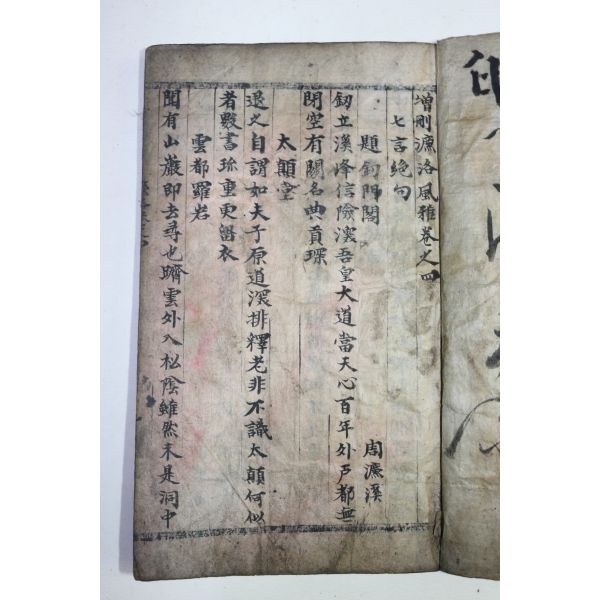 增刪濂洛風雅卷之四
七言絶句
題釰門閣
周濂溪
釰立溪峰信險深吾皇大道當天心百年外戶都無
閉空有關名典貢琛
太顛堂
退之自謂如夫子原道深排釋老非不識太顛何似
者數書珎重更留衣
雲都羅岩
聞有山巖即去尋也躋雲外入松陰雖然未是洞中